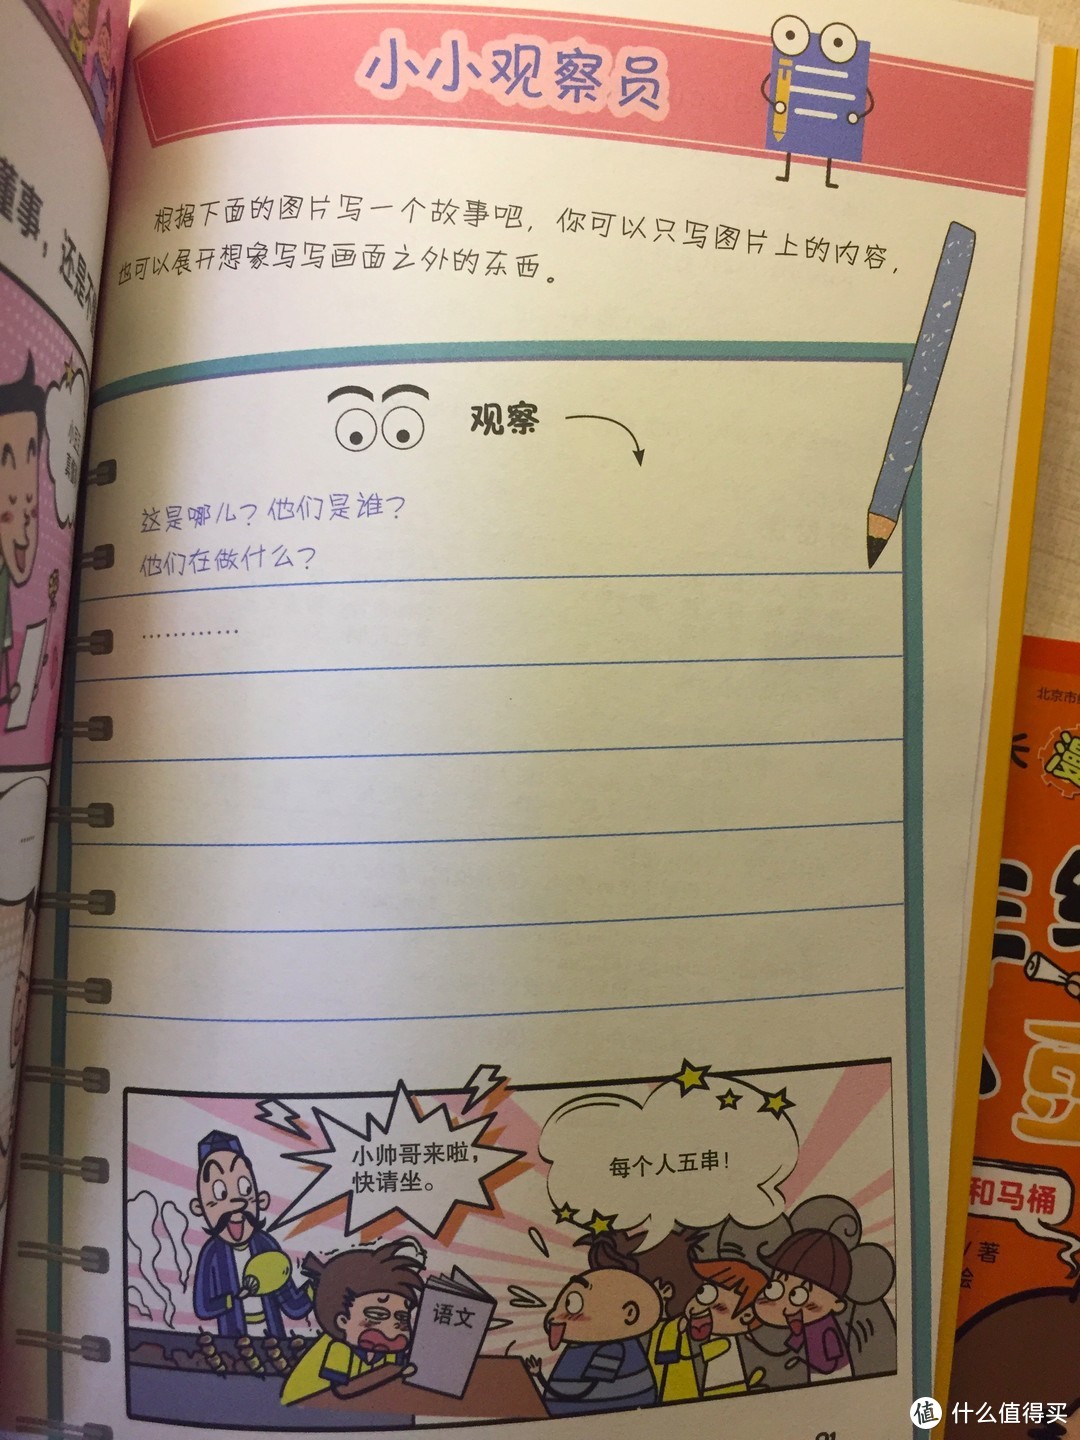 小小观察员
根据下面的图片写一个故事吧，你可以只写图片上的内容，
也可以展开想象写写画面之外的东西。
观察
这是哪儿？他们是谁？
他们在做什么？
…………
小帅哥来啦，
快请坐。
每个人五串！
语文
董事，还是不
北京市
漫
和马桶
著
绘
值 什么值得买